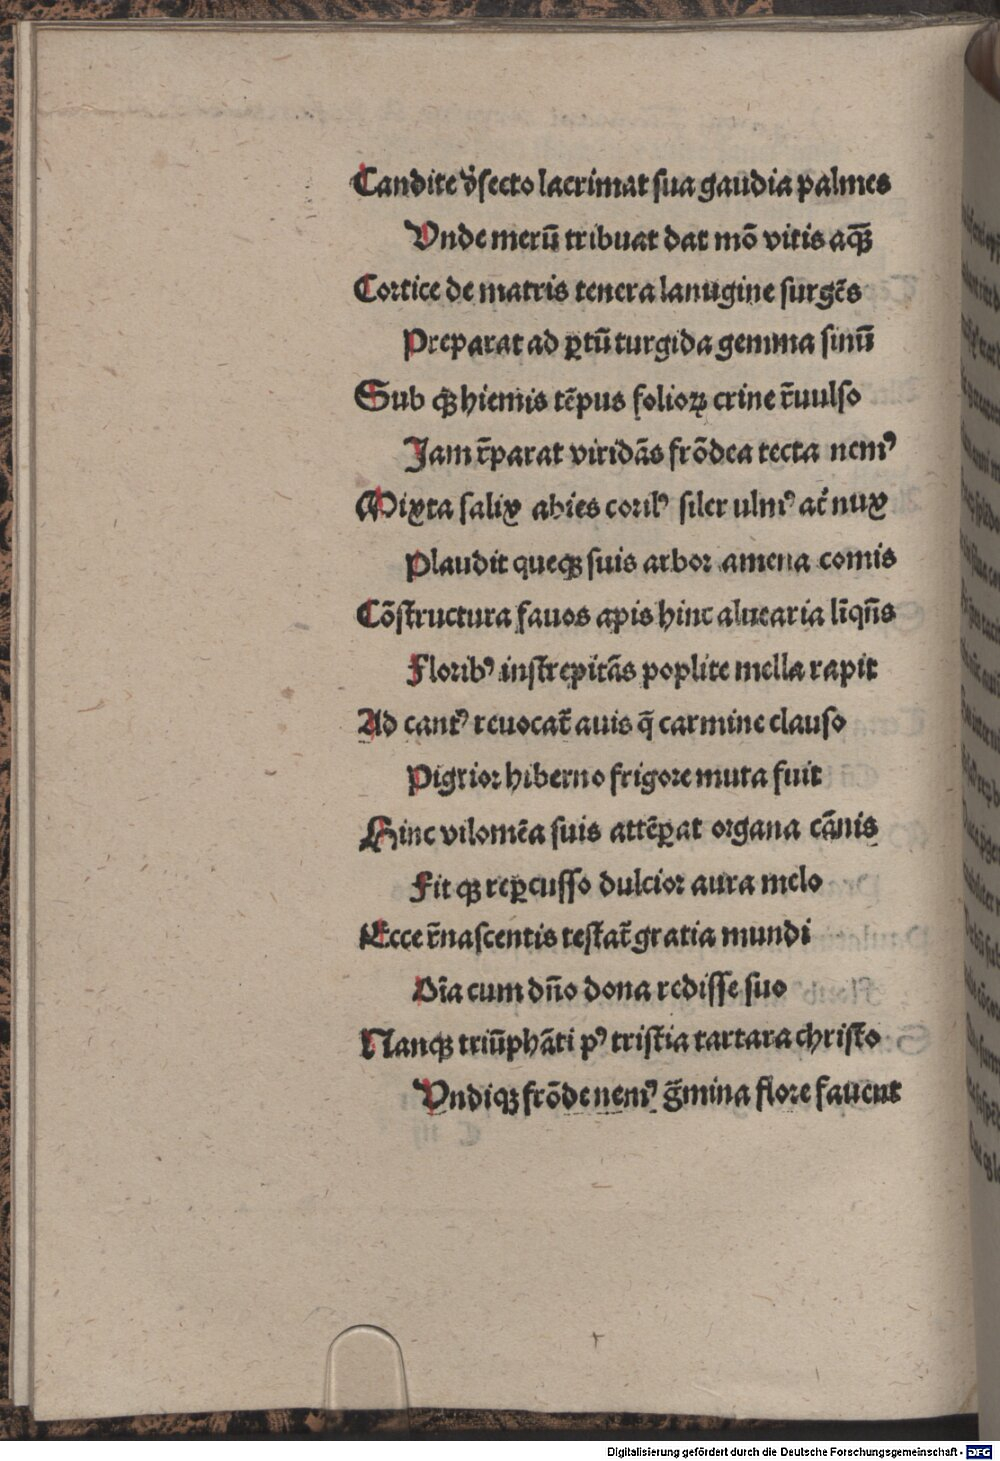 Candite dʼsecto lacrimat sua gaudia palmes
Vnde merū tribuat dat mō vitis aq̄ꝫ
Cortice de matris tenera lanugine surgēs
Preparat ad ꝑtū turgida gemma sinū
Sub qꝫ hiemis tēpus folioꝝ crine r̄uulso
Jam r̄parat viridās frōdea tecta nemꝰ
Mixta salix abies corilꝰ siler ulmꝰ ac̄ nux
Plaudit queqꝫ suis arbor amena comis
Cōstructura fauos apis hinc aluearia līqn̄s
Floribꝰ instrepitās poplite mella rapit
Ad cantꝰ reuocat̄ auis q̄ carmine clauso
Pigrior hiberno frigore muta fuit
Hinc vilomēa suis attēꝑat organa cānis
Fit qꝫ reꝑcusso dulcior aura melo
Ecce r̄nascentis testat̄ gratia mundi
Oīa cum dn̄o dona redisse suo
Nanqꝫ triūphāti pꝰ tristia tartara christo
Vndiqꝫ frōde nemꝰ ḡmina flore fauent
Digitalisierung gefördert durch die Deutsche Forschungsgemeinschaft - DFG